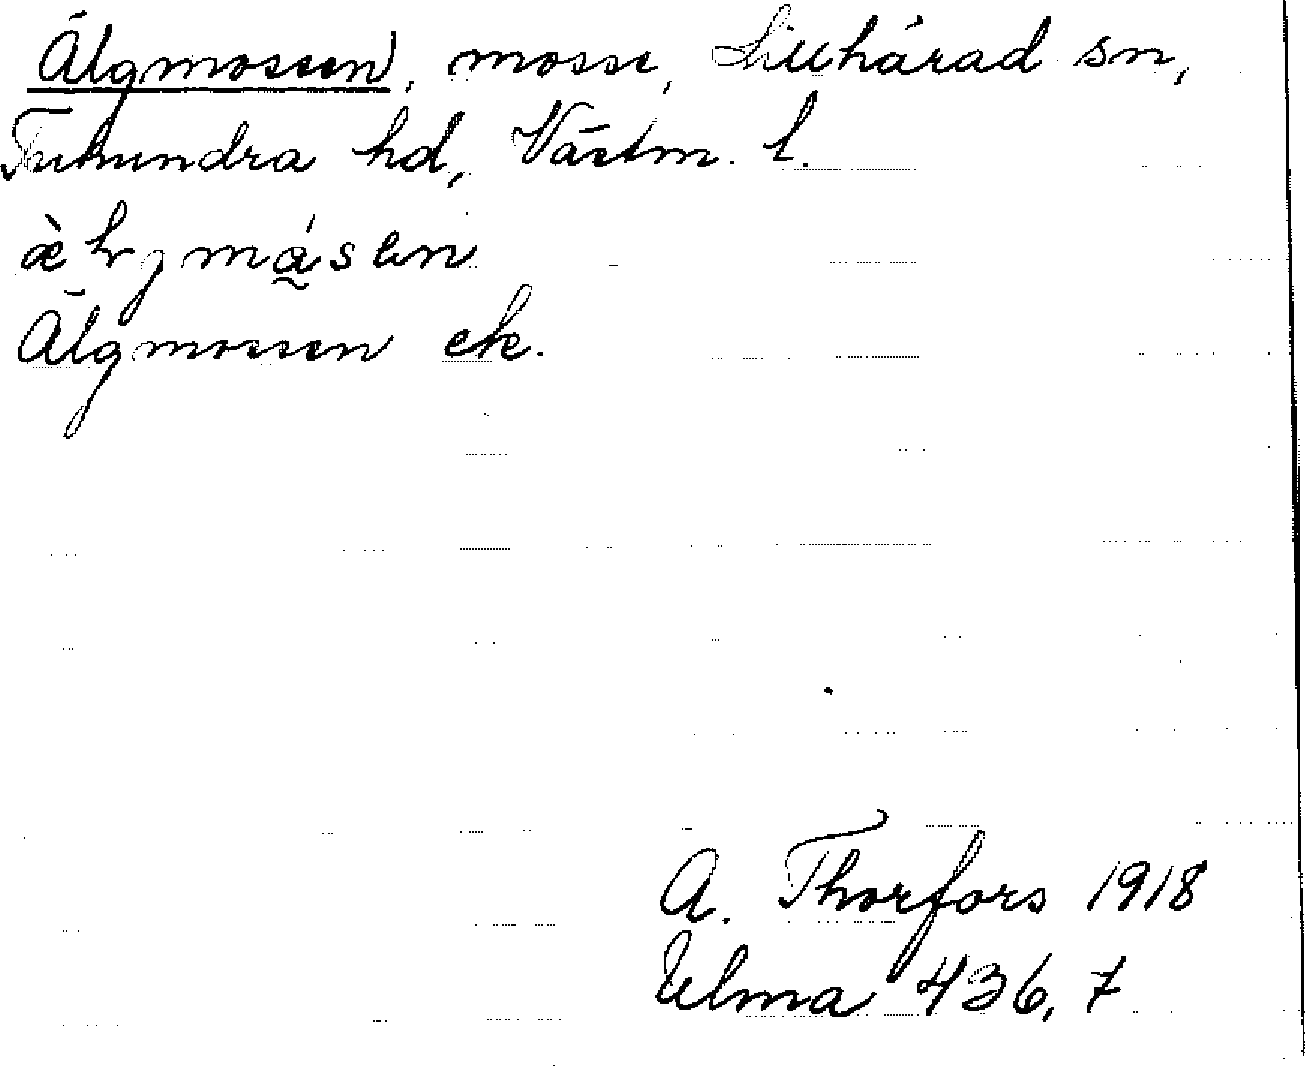 Älgmossen, mosse, Litslena sn,
Tuhundra hd, Västm. l.
Älgmossen ek.
A. Thorfors 1918
Ulma 436, 7